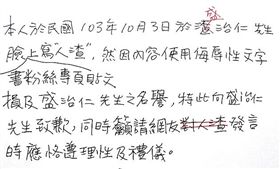 盛
本人於民國103年10月3日於渣治仁 先生
臉上寫人渣"，然因內容使用侮辱性文字
書粉絲專頁貼文
損及盛治仁先生之名譽，特此向盛治仁
先生致歉，同時籲請網友對人渣發言
時應恪遵理性及禮儀。